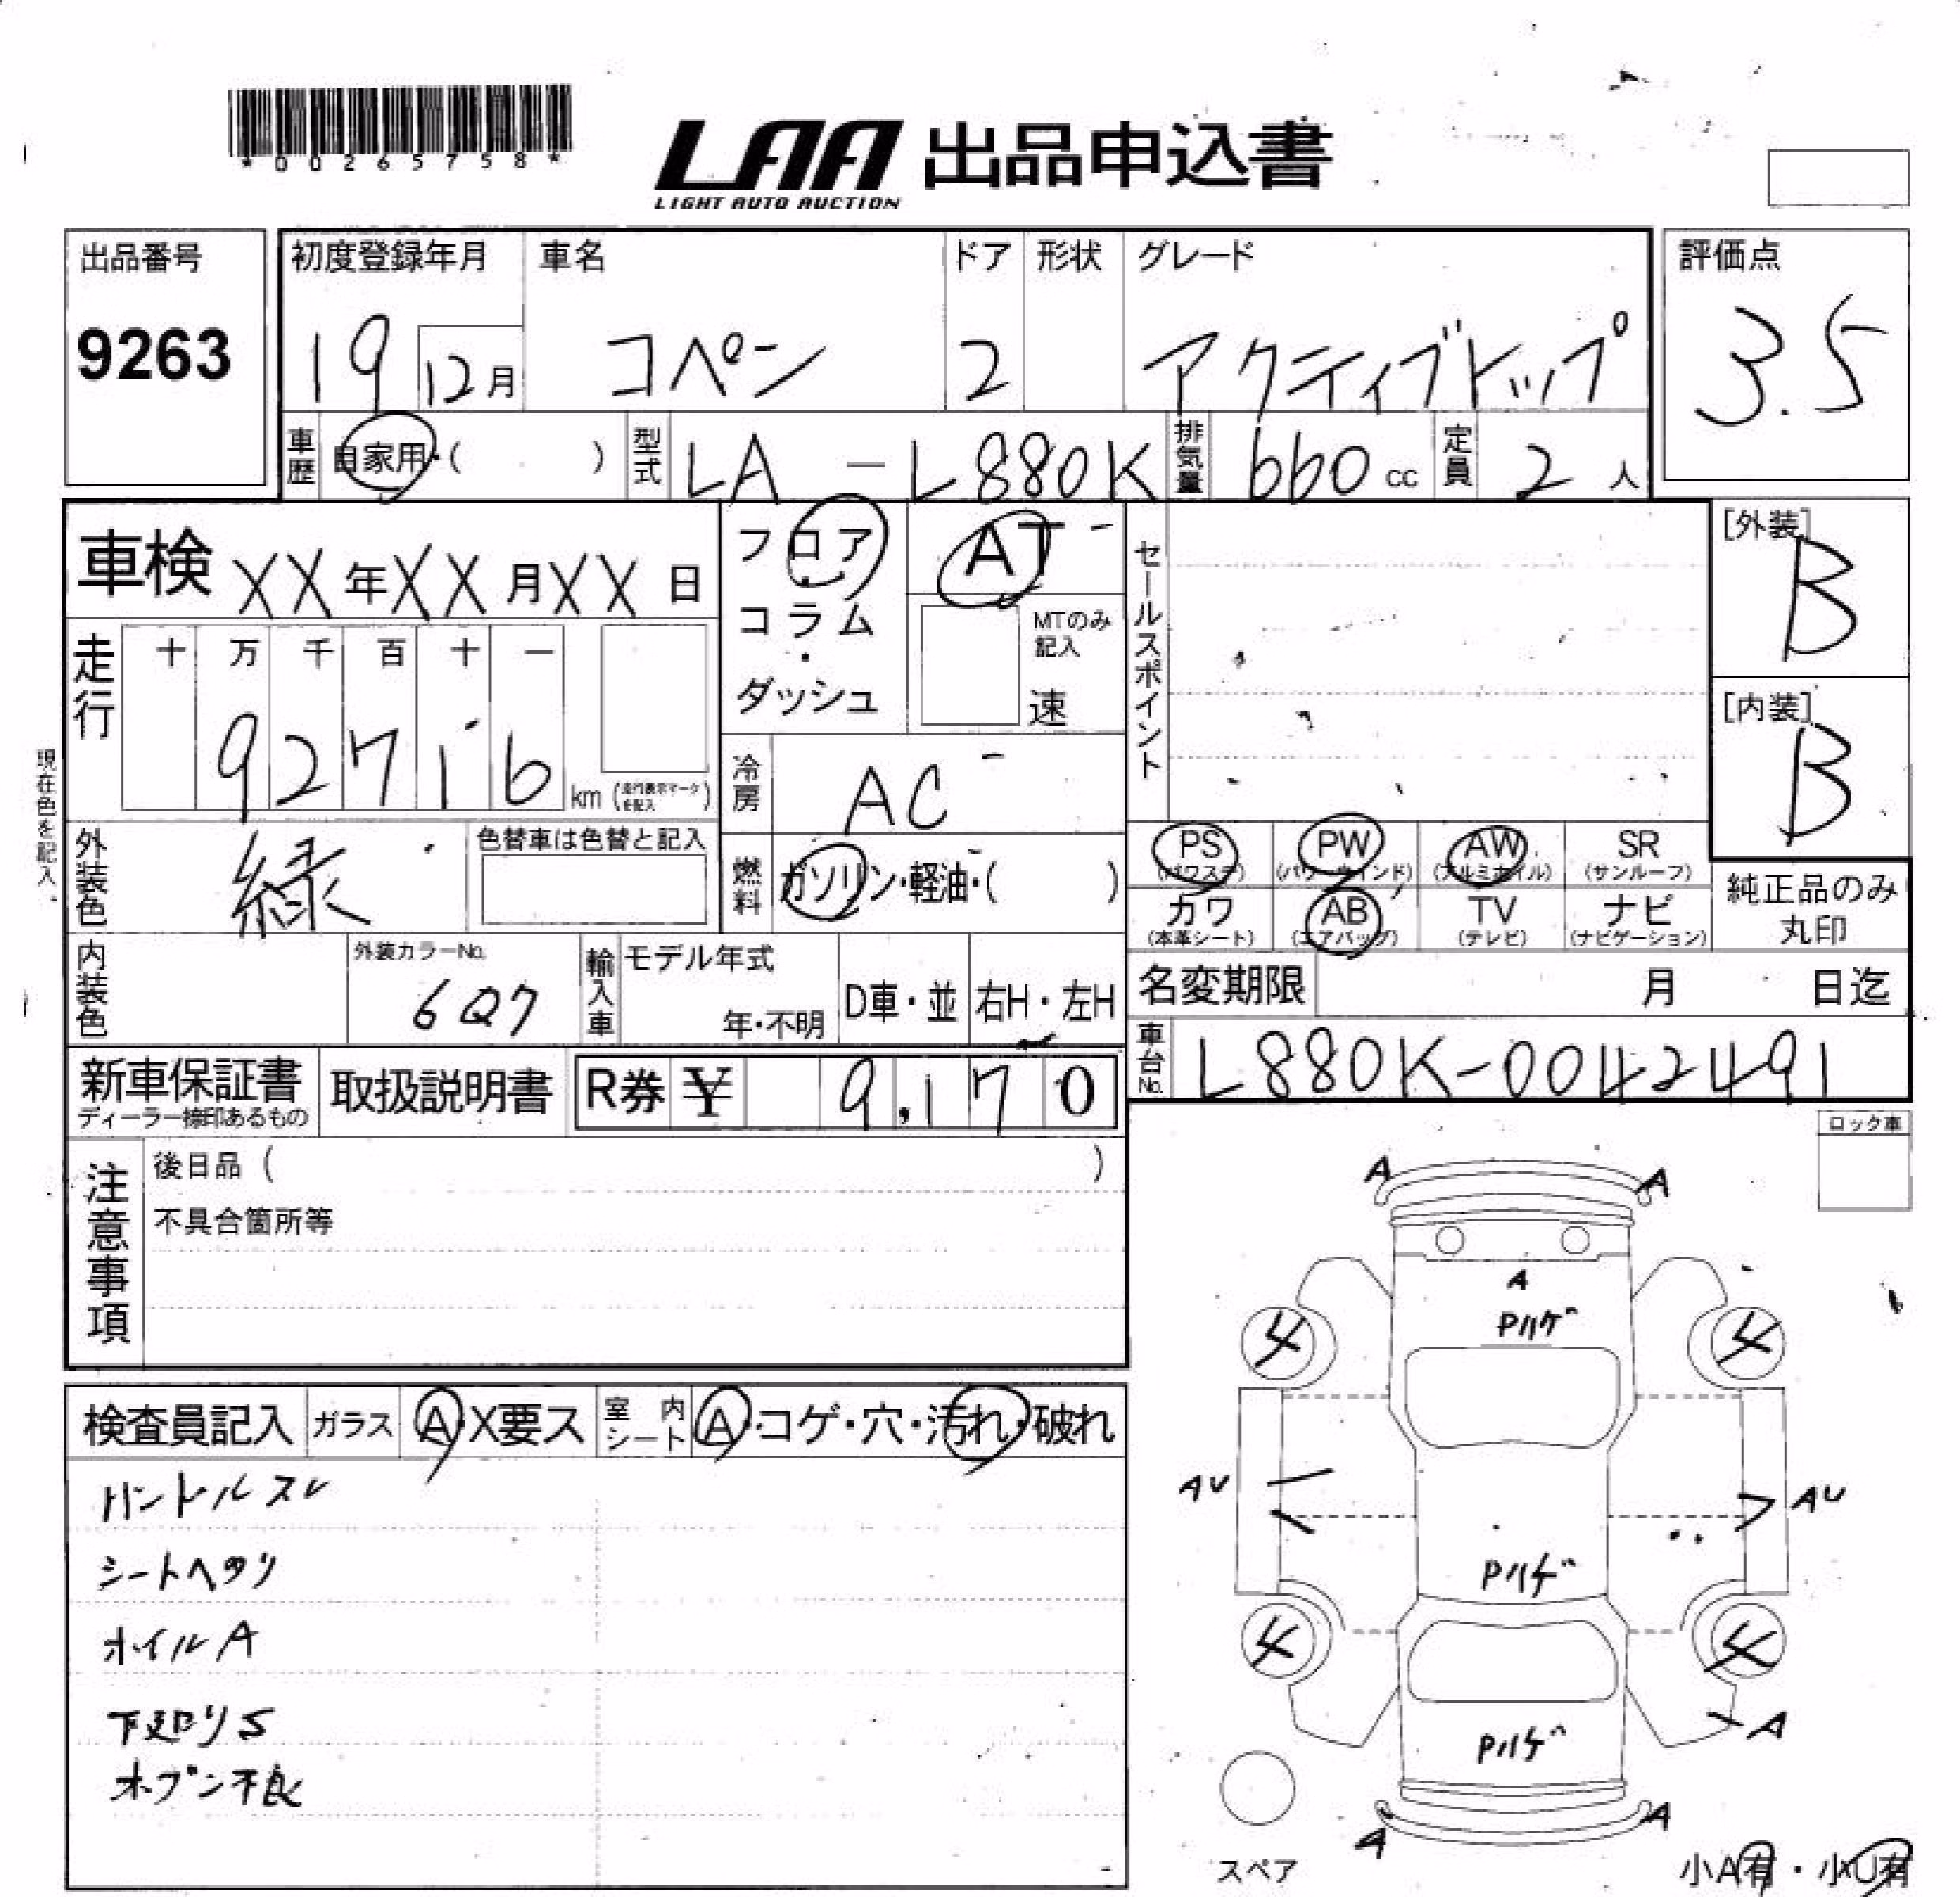 *00265758*
LAA 出品申込書
LIGHT AUTO AUCTION
出品番号 初度登録年月 車名 ドア 形状 グレード 評価点
9263 19 12月 コペン 2 アクティブトップ 3.5
車歴 自家用・( ) 型式 LA - L880K 排気量 660 cc 定員 2 人
車検 XX年XX月XX日
フロア・コラム・ダッシュ
AT
MTのみ記入
速
セールスポイント
[外装]
B
[内装]
B
走行 十 万 千 百 十 一
92716 km (走行表示マークを記入)
冷房 AC
現在色を記入。
外装色 緑 色替車は色替と記入
燃料 ガソリン・軽油・( )
PS (パワステ) PW (パワーウインド) AW (アルミホイル) SR (サンルーフ)
カワ (本革シート) AB (エアバッグ) TV (テレビ) ナビ (ナビゲーション)
純正品のみ丸印
内装色 外装カラーNo. 6Q7 輸入車 モデル年式 年・不明 D車・並 右H・左H
名変期限 月 日迄
車台No. L880K-0042491
新車保証書 ディーラー捺印あるもの 取扱説明書 R券 ¥ 9,170
ロック車
注意事項 後日品 ( )
不具合箇所等
検査員記入 ガラス A・X要ス 室内シート A・コゲ・穴・汚れ・破れ
ハンドルスレ
シートヘタリ
ホイルA
下廻りS
オープン不良
A A
A
Pハゲ
4 4
AU AU
Pハゲ
4 4
Pハゲ
A
A A
スペア
小A有・小U有